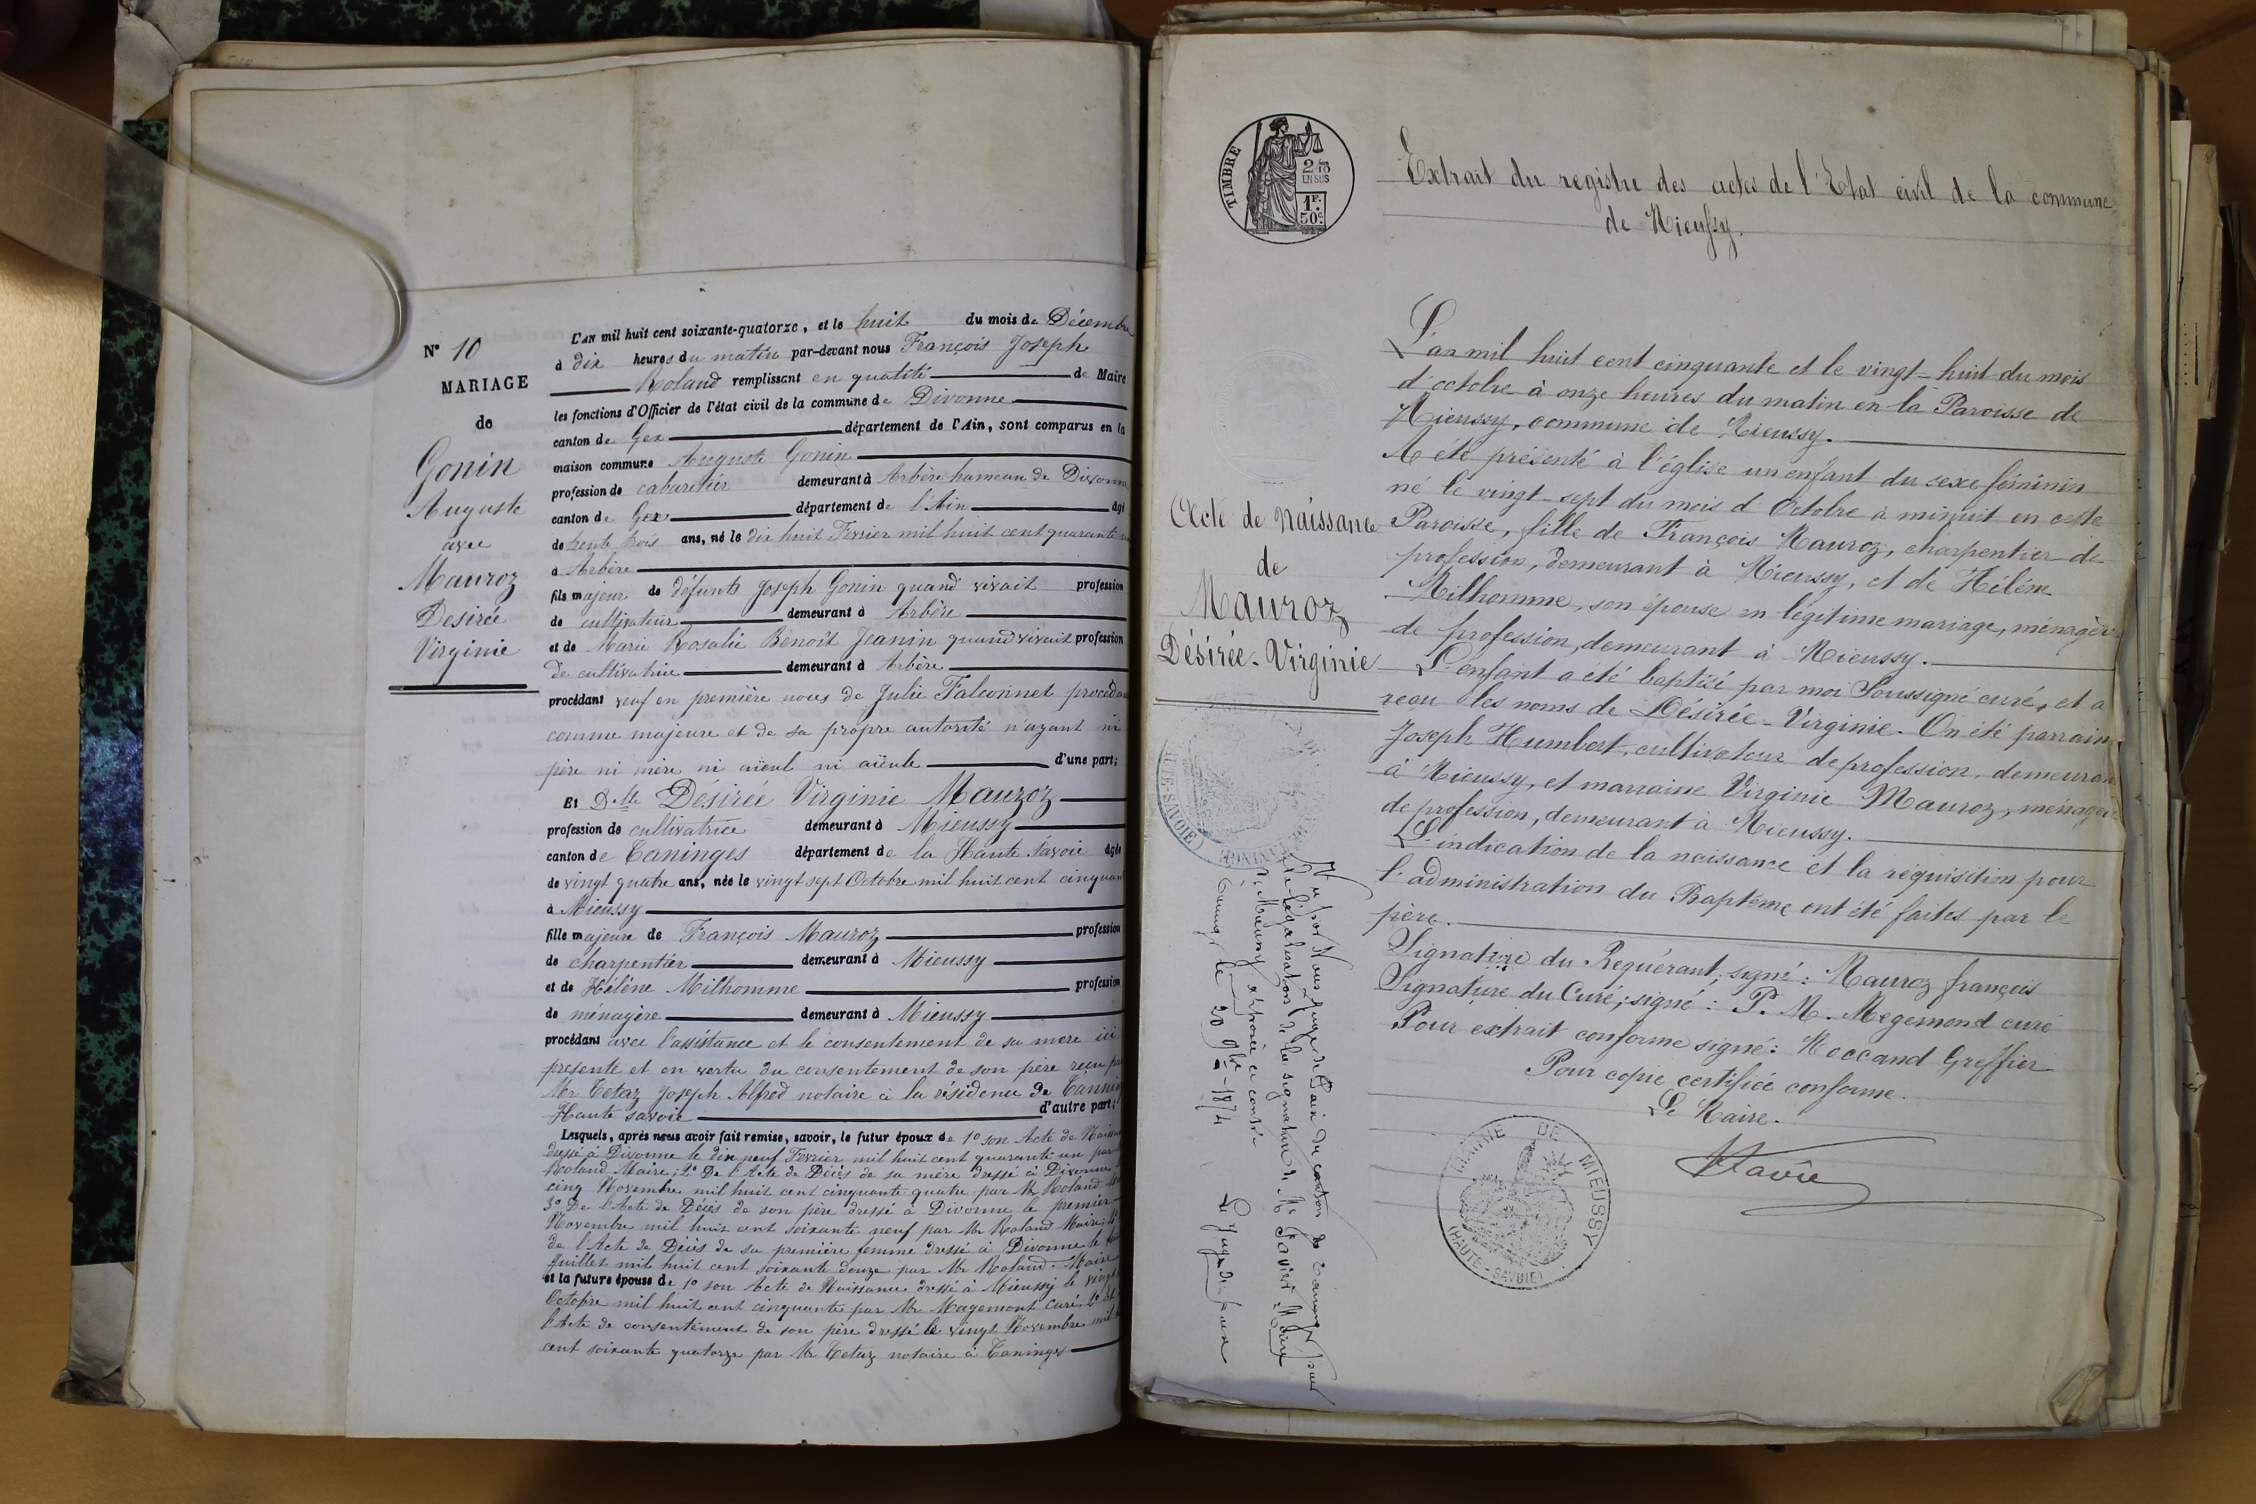 N° 10
MARIAGE
de
Gonin
Auguste
avec
Mauroz
Desirée
Virginie
L'AN mil huit cent soixante-quatorze, et le huit du mois de Décembre
à dix heures du matin par-devant nous François Joseph
Roland remplissant en qualité de Maire
les fonctions d'Officier de l'état civil de la commune de Divonne
canton de Gex département de l'Ain, sont comparus en la
maison commune Auguste Gonin
profession de cabaretier demeurant à Arbère hameau de Divonne
canton de Gex département de l'Ain âgé
de trente trois ans, né le dix huit Fevrier mil huit cent quarante
à Arbère
fils majeur de défunts Joseph Gonin quand vivait profession
de cultivateur demeurant à Arbère
et de Marie Rosalie Benoit Jeanin quand vivait profession
de cultivatrice demeurant à Arbère
procédant veuf en première noces de Julie Falconnet procédant
comme majeure et de sa propre autorité n'ayant ni
père ni mère ni aïeul ni aïeule d'une part;
Et Dlle Desirée Virginie Mauroz
profession de cultivatrice demeurant à Mieussy
canton de Taninges département de la Haute Savoie âgée
de vingt quatre ans, née le vingt sept Octobre mil huit cent cinquante
à Mieussy
fille majeure de François Mauroz profession
de charpentier demeurant à Mieussy
et de Hélène Milhomme profession
de ménagère demeurant à Mieussy
procédant avec l'assistance et le consentement de sa mere ici
presente et en vertu du consentement de son père reçu par
Mr Tetaz Joseph Alfred notaire à la résidence de Taninges
Haute savoie d'autre part;
Lesquels, après nous avoir fait remise, savoir, le futur époux de 1° son Acte de Naissance
dressé à Divonne le dix neuf Fevrier mil huit cent quarante un par
Roland Maire; 2° De l'Acte de Décès de sa mère dressé à Divonne
cinq Novembre mil huit cent cinquante quatre par Mr Roland
3° De l'Acte de Décès de son père dressé à Divonne le premier
Novembre mil huit cent soixante neuf par Mr Roland Maire; 4°
de l'Acte de Décès de sa première femme dressé à Divonne le
Juillet mil huit cent soixante douze par Mr Roland Maire
et la future épouse de 1° son Acte de Naissance dressé à Mieussy le vingt
Octobre mil huit cent cinquante par Mr Magemont Curé, 2° de
l'Acte de consentement de son père dressé le vingt Novembre mil
cent soixante quatorze par Mr Tetaz notaire à Taninges
TIMBRE
2/10
EN SUS
1F.
50c
Extrait du registre des actes de l'Etat civil de la commune
de Mieussy.
Acte de Naissance
de
Mauroz
Désirée-Virginie
L'an mil huit cent cinquante et le vingt-huit du mois
d'octobre à onze heures du matin en la Paroisse de
Mieussy, commune de Mieussy.
A été présenté à l'église un enfant du sexe féminin
né le vingt-sept du mois d'Octobre à minuit en cette
Paroisse, fille de François Mauroz, charpentier de
profession, demeurant à Mieussy, et de Hélène
Milhomme, son épouse en légitime mariage, ménagère
de profession, demeurant à Mieussy.
L'enfant a été baptisé par moi Soussigné curé, et a
reçu les noms de Désirée-Virginie. On été parrain
Joseph Humbert, cultivateur de profession, demeurant
à Mieussy, et marraine Virginie Mauroz, ménagère
de profession, demeurant à Mieussy.
L'indication de la naissance et la réquisition pour
l'administration du Baptême ont été faites par le
père.
Signature du Requérant, signé: Mauroz françois
Signature du Curé; signé: P. M. Megemond curé
Pour extrait conforme signé: Moccand Greffier
Pour copie certifiée conforme.
Le Maire.
MAIRIE DE MIEUSSY
(HAUTE-SAVOIE)
HTE-SAVOIE
Vu par Nous Juge de Paix du canton de Taninges pour
la légalisation de la signature de Mr
de Mieussy apposée ci contre
Taninges le 20 9bre 1874
Le Juge de paix